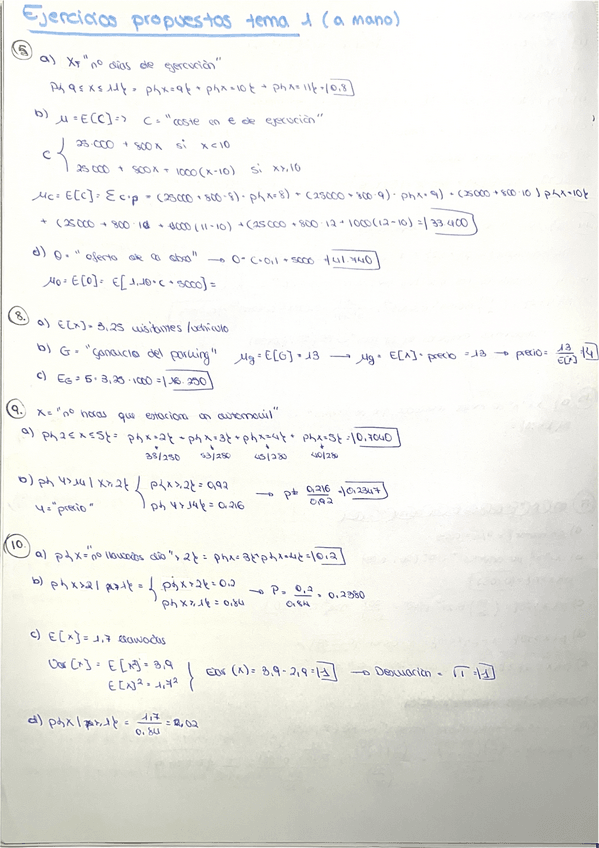 Ejercicios propuestos tema 1 (a mano)
5. a) X = "nº días de ejecución"
P{9 ≤ x ≤ 11} = p{x=9} + p{x=10} + p{x=11} = 0,8
b) μ = E[C] => C = "coste en € de ejecución"
C { 25.000 + 800x si x<10
25000 + 800x + 1000(x-10) si x≥10
μc = E[C] = Σc·p = (25000+800·8)·p{x=8} + (25000+800·9)·p{x=9} + (25000+800·10) p{x=10}
+ (25000+800·11 + 1000(11-10) + (25000+800·12+1000(12-10) = 33.400
d) O = "oferta de la obra" → O = C·0,1 + 5000 = 41.740
μo = E[O] = E[1,10·C + 5000] =
8. a) E[X] = 3,25 visitantes/vehículo
b) G = "ganancia del parking" μg = E[G] = 13 → μg = E[X]·precio = 13 → precio = 13/E[X] = 4
c) EG = 5·3,25·1000 = 16.250
9. X = "nº horas que estaciona un automovil"
a) p{2 ≤ x ≤ 5} = p{x=2} + p{x=3} + p{x=4} + p{x=5} = 0,7040
38/250 53/250 45/250 40/250
b) p{Y>14 | x≥2} { p{x≥2} = 0,92
p{Y>14} = 0,216 → p = 0,216/0,92 = 0,2347
Y = "precio"
10. a) p{x = "nº llamadas día" > 2} = p{x=3} + p{x=4} = 0,2
b) p{x>2 | x≥1} = { p{x>2} = 0,2
p{x≥1} = 0,84 → P = 0,2/0,84 = 0,2380
c) E[X] = 1,7 llamadas
Var[X] = E[X²] = 3,9
E[X]² = 1,7² } Var(x) = 3,9 - 2,9 = 1 → Desviación = √1 = 1
d) p{x | x≥1} = 1,7/0,84 = 2,02